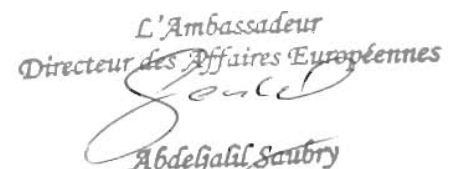 L'Ambassadeur
Directeur des Affaires Européennes
Abdeljalil Saubry